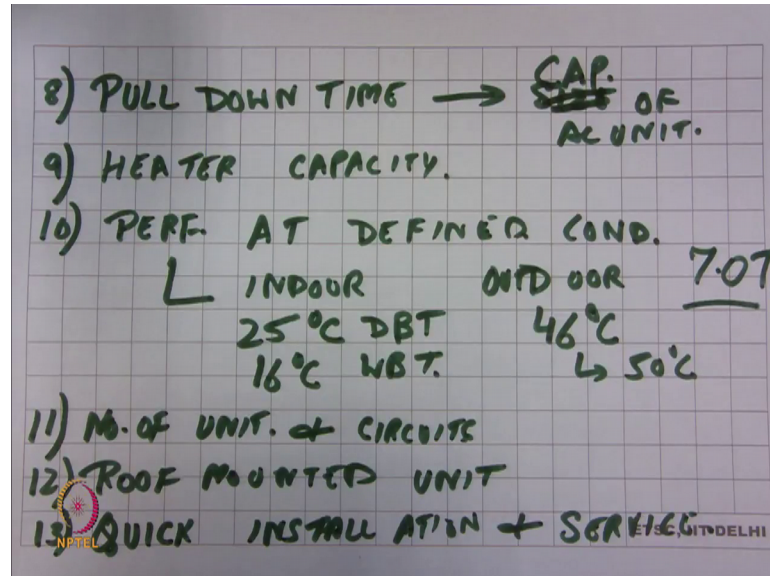 CAP.
8) PULL DOWN TIME → OF
AC UNIT.
9) HEATER CAPACITY.
10) PERF. AT DEFINED COND.
INDOOR OUTDOOR 7.0T
25°C DBT 46°C
16°C WBT. ↳ 50°C
11) No. OF UNIT. & CIRCUITS
12) ROOF MOUNTED UNIT
13) QUICK INSTALLATION + SERVICE.
NPTEL
ETSC, IIT DELHI